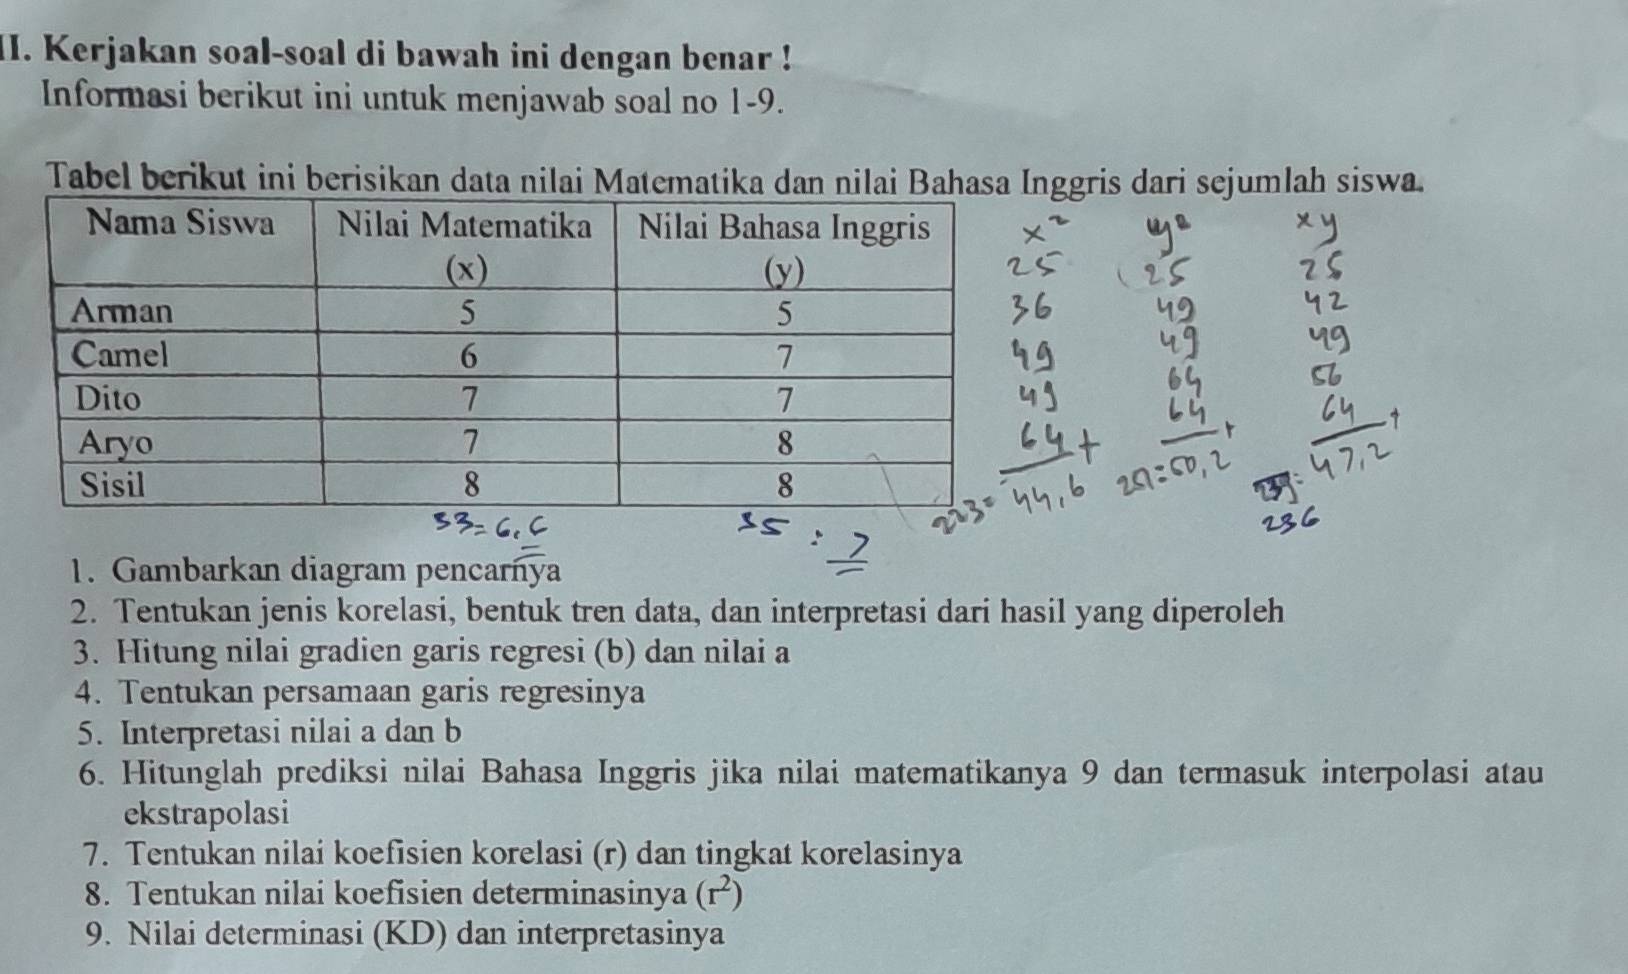 II. Kerjakan soal-soal di bawah ini dengan benar !
Informasi berikut ini untuk menjawab soal no 1-9.
Tabel berikut ini berisikan data nilai Matematika dan nilai Bahasa Inggris dari sejumlah siswa.
Nama Siswa Nilai Matematika (x) Nilai Bahasa Inggris (y) x² y² xy
25 25 25
Arman 5 5 36 49 42
Camel 6 7 49 49 49
Dito 7 7 49 64 56
Aryo 7 8 64 + 64 + 64 +
Sisil 8 8 223 = 44,6 251 = 50,2 : 47,2
33 = 6,6 35 : 7 236
1. Gambarkan diagram pencarnya
2. Tentukan jenis korelasi, bentuk tren data, dan interpretasi dari hasil yang diperoleh
3. Hitung nilai gradien garis regresi (b) dan nilai a
4. Tentukan persamaan garis regresinya
5. Interpretasi nilai a dan b
6. Hitunglah prediksi nilai Bahasa Inggris jika nilai matematikanya 9 dan termasuk interpolasi atau
ekstrapolasi
7. Tentukan nilai koefisien korelasi (r) dan tingkat korelasinya
8. Tentukan nilai koefisien determinasinya (r²)
9. Nilai determinasi (KD) dan interpretasinya